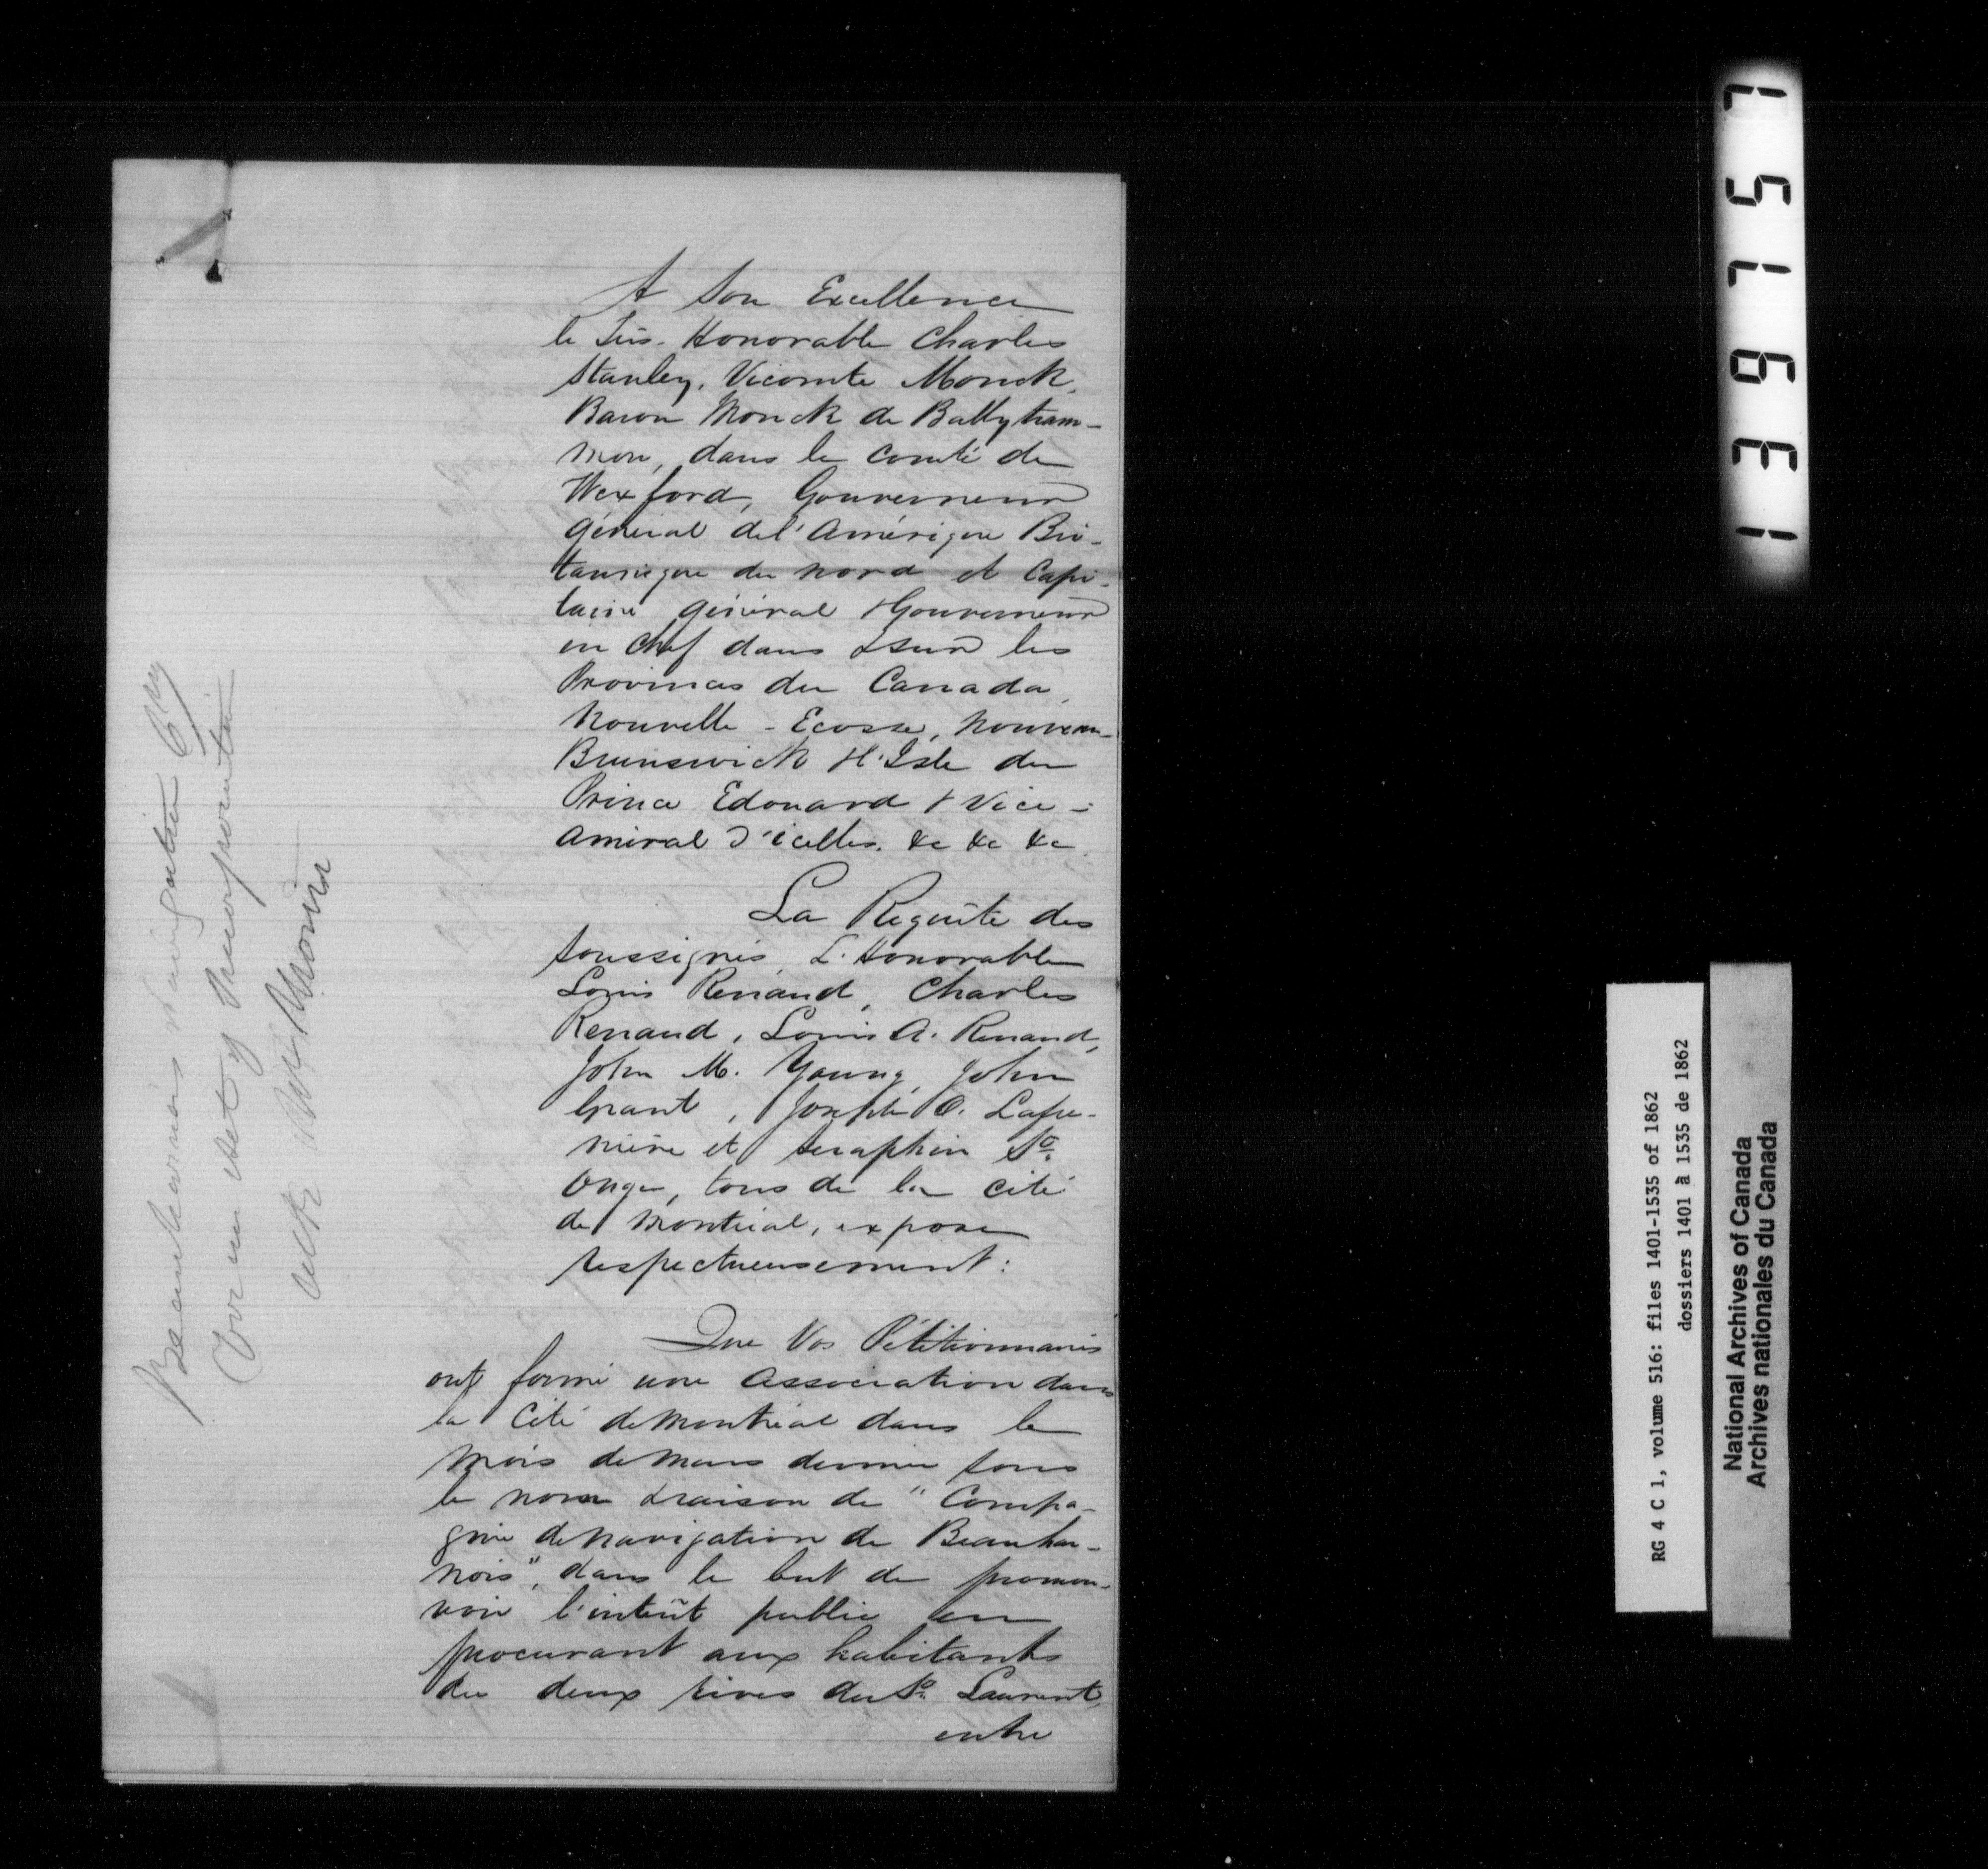 A Son Excellence
le Très-Honorable Charles
Stanley, Vicomte Monck,
Baron Monck de Ballytram-
mon, dans le comté de
Wexford, Gouverneur
Général de l'Amérique Bri-
tannique du nord et Capi-
taine général & Gouverneur
en Chef dans & sur les
Provinces du Canada,
Nouvelle-Ecosse, Nouveau-
Brunswick & l'Isle du
Prince Edouard & Vice-
Amiral d'icelles. &c &c &c
La Requête des
soussignés, L'Honorable
Louis Renaud, Charles
Renaud, Louis A. Renaud,
John M. Young, John
Grant, Joseph O. Lafre-
nière et Seraphin St.
Onge, tous de la cité
de Montréal, expose
respectueusement:
Que Vos Pétitionnaires
ont formé une Association dans
la Cité de Montréal dans le
mois de Mars dernier sous
le nom & raison de "Compa-
gnie de Navigation de Beauhar-
nois", dans le but de promou-
voir l'intérêt public en
procurant aux habitants
des deux rives du St. Laurent,
entre
Beauharnois Navigation Coy
For an Act of Incorporation
131 6157
RG 4 C 1, volume 516: files 1401-1535 of 1862
dossiers 1401 à 1535 de 1862
National Archives of Canada
Archives nationales du Canada